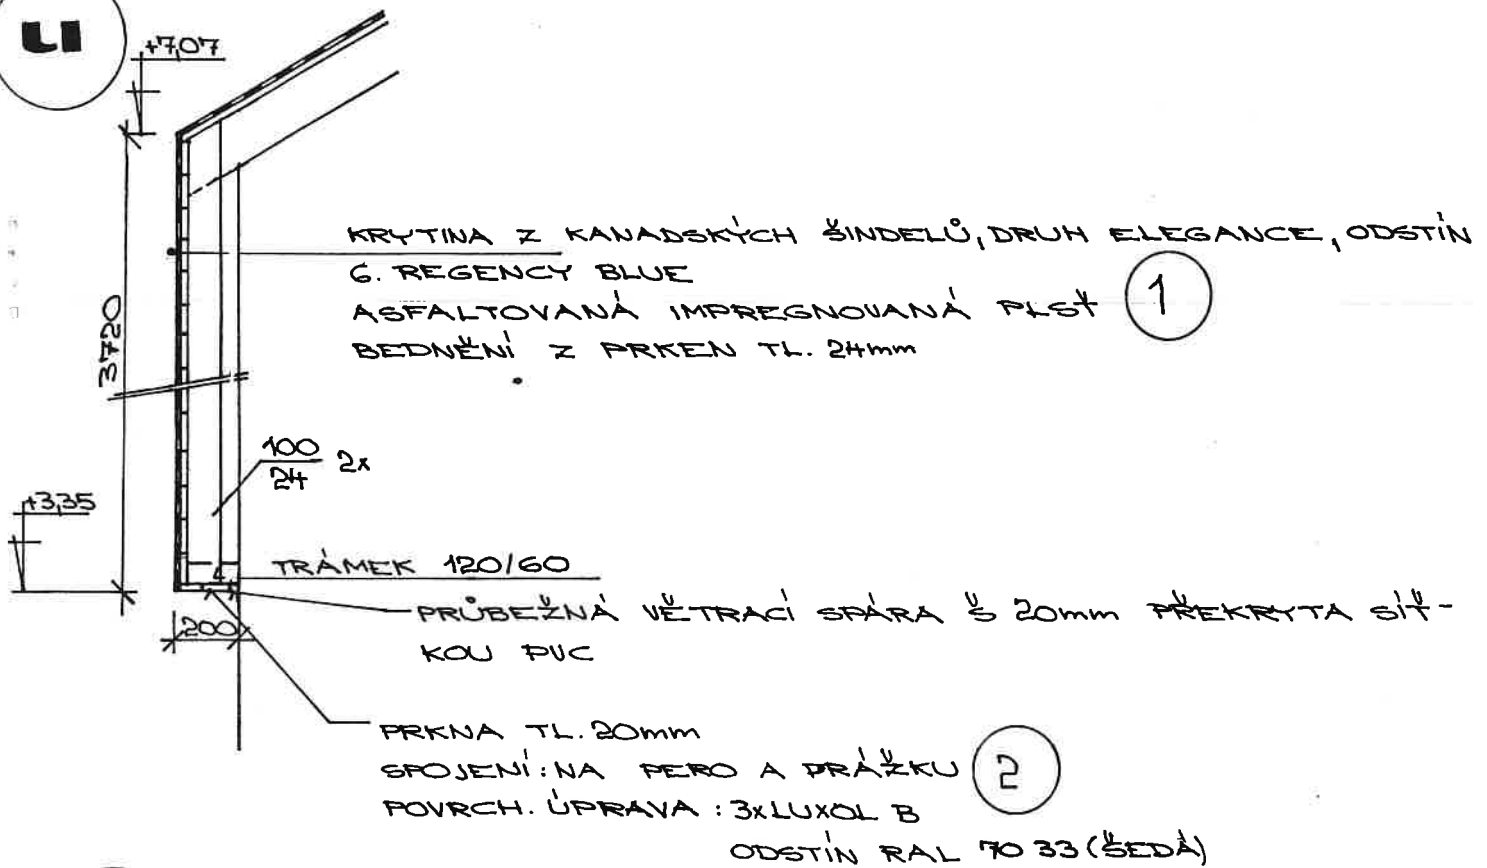 LI
+7,07
KRYTINA Z KANADSKÝCH ŠINDELŮ, DRUH ELEGANCE, ODSTÍN
6. REGENCY BLUE
ASFALTOVANÁ IMPREGNOVANÁ PLSŤ
1
BEDNĚNÍ Z PRKEN TL. 24mm
3720
100
24 2x
+3,35
TRÁMEK 120/60
PRŮBEŽNÁ VĚTRACÍ SPÁRA Š 20mm PŘEKRYTA SÍŤ-
KOU PVC
200
PRKNA TL. 20mm
SPOJENÍ: NA PERO A DRÁŽKU
2
POVRCH. ÚPRAVA : 3x LUXOL B
ODSTÍN RAL 7033 (ŠEDÁ)